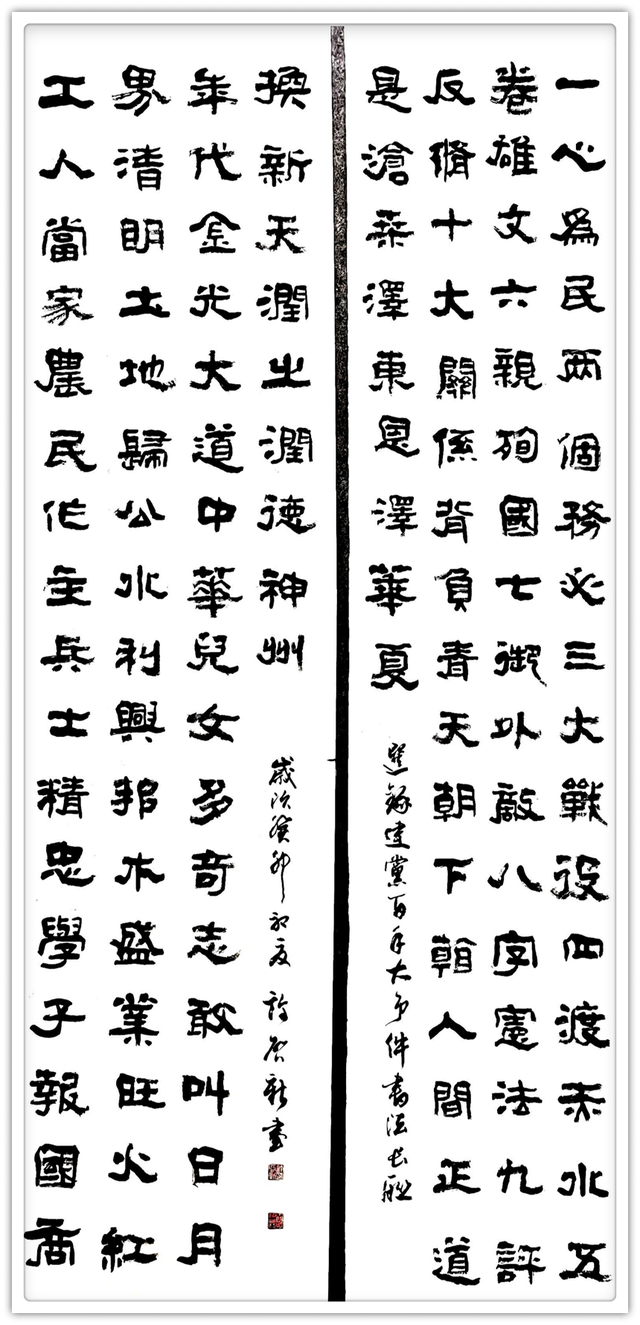 一心爲民兩個務必三大戰役四渡赤水五
卷雄文六親殉國七御外敵八字憲法九評
反脩十大關係背負青天朝下看人間正道
是滄桑澤東恩澤華夏
選錄建黨百年大事件書法長聯
工人當家農民作主兵士精忠學子報國商
界清明土地歸公水利興邦木盛業旺火紅
年代金光大道中華兒女多奇志敢叫日月
換新天潤之潤德神州
歲次癸卯初夏 書